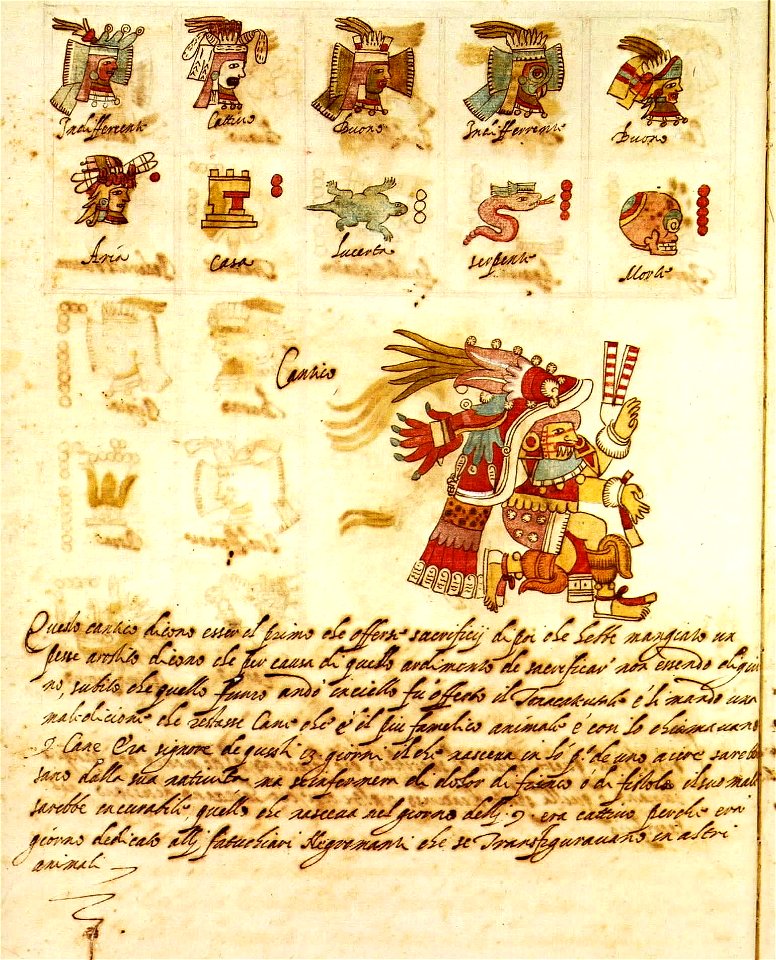 Indifferente Cattivo Buono Indifferente Buono
Aria Casa Lucerta Serpente Morte
Cantico
Questo cantico dicono esser el primo che offerse sacrificij di poi che hebbe mangiato un
pesse arostito dicono che per causa di quello ardimento de sacrificar non essendo digiu
no, subito che quello fumo andò in cielo fu offeso il é li mandò una
maledicione che restasse Cane che è il piu famelico animale é con lo chiamavano
9 Cane Era signore de questi 13 giorni il che nasceva in lo p.º de uno acere sarebe
sano dalla sua natività ma se infermera di dolor di fianco ò di fistola il suo male
sarebbe incurabile, quello che nasceva nel giorno delli 9 era cattivo perche era
giorno dedicato allj fatuchiari Negromanti che se Transfiguravano in altri
animali